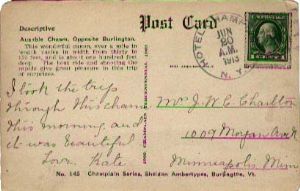 Descriptive
Post Card
Ausable Chasm, Opposite Burlington.
This wonderful canon, over a mile in
length varies in width from thirty to
150 feet, and is also one hundred feet
deep. The boat ride and shooting the
rapids give great pleasure in this trip
of surprises.
HOTEL CHAMP
JUN
30
A.M.
1913
N.Y.
I took the trip
through this chasm
this morning and
it was beautiful
Love. Kate
Mr. J. W. C. Charlton
1009 Morgan Ave
Minneapolis Minn.
No. 145 Champlain Series, Sheldon Ambertypes, Burlington, Vt.